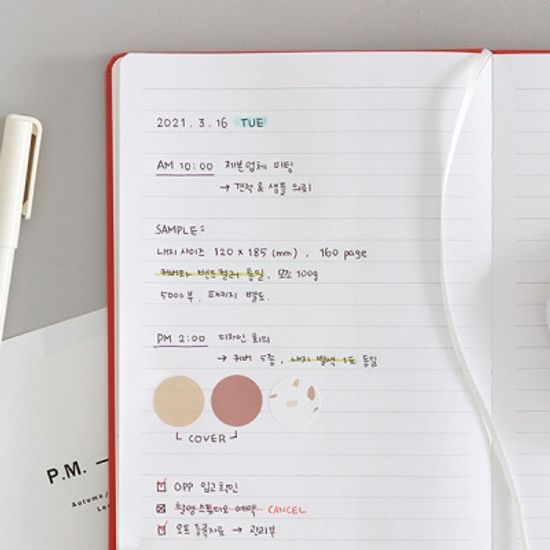 2021. 3. 16 TUE
AM 10:00 제본업체 미팅
→ 견적 & 샘플 의뢰
SAMPLE:
내지 사이즈 120 x 185 (mm), 160 page
커버와 밴드컬러 통일, 모조 100g
5000부, 패키지 별도.
PM 2:00 디자인 회의
→ 커버 5종, 내지 별색 1도 통일
COVER
OPP 입고확인
촬영스튜디오 예약 CANCEL
오픈 등록자료 → 관리부
P.M.
Autumn/